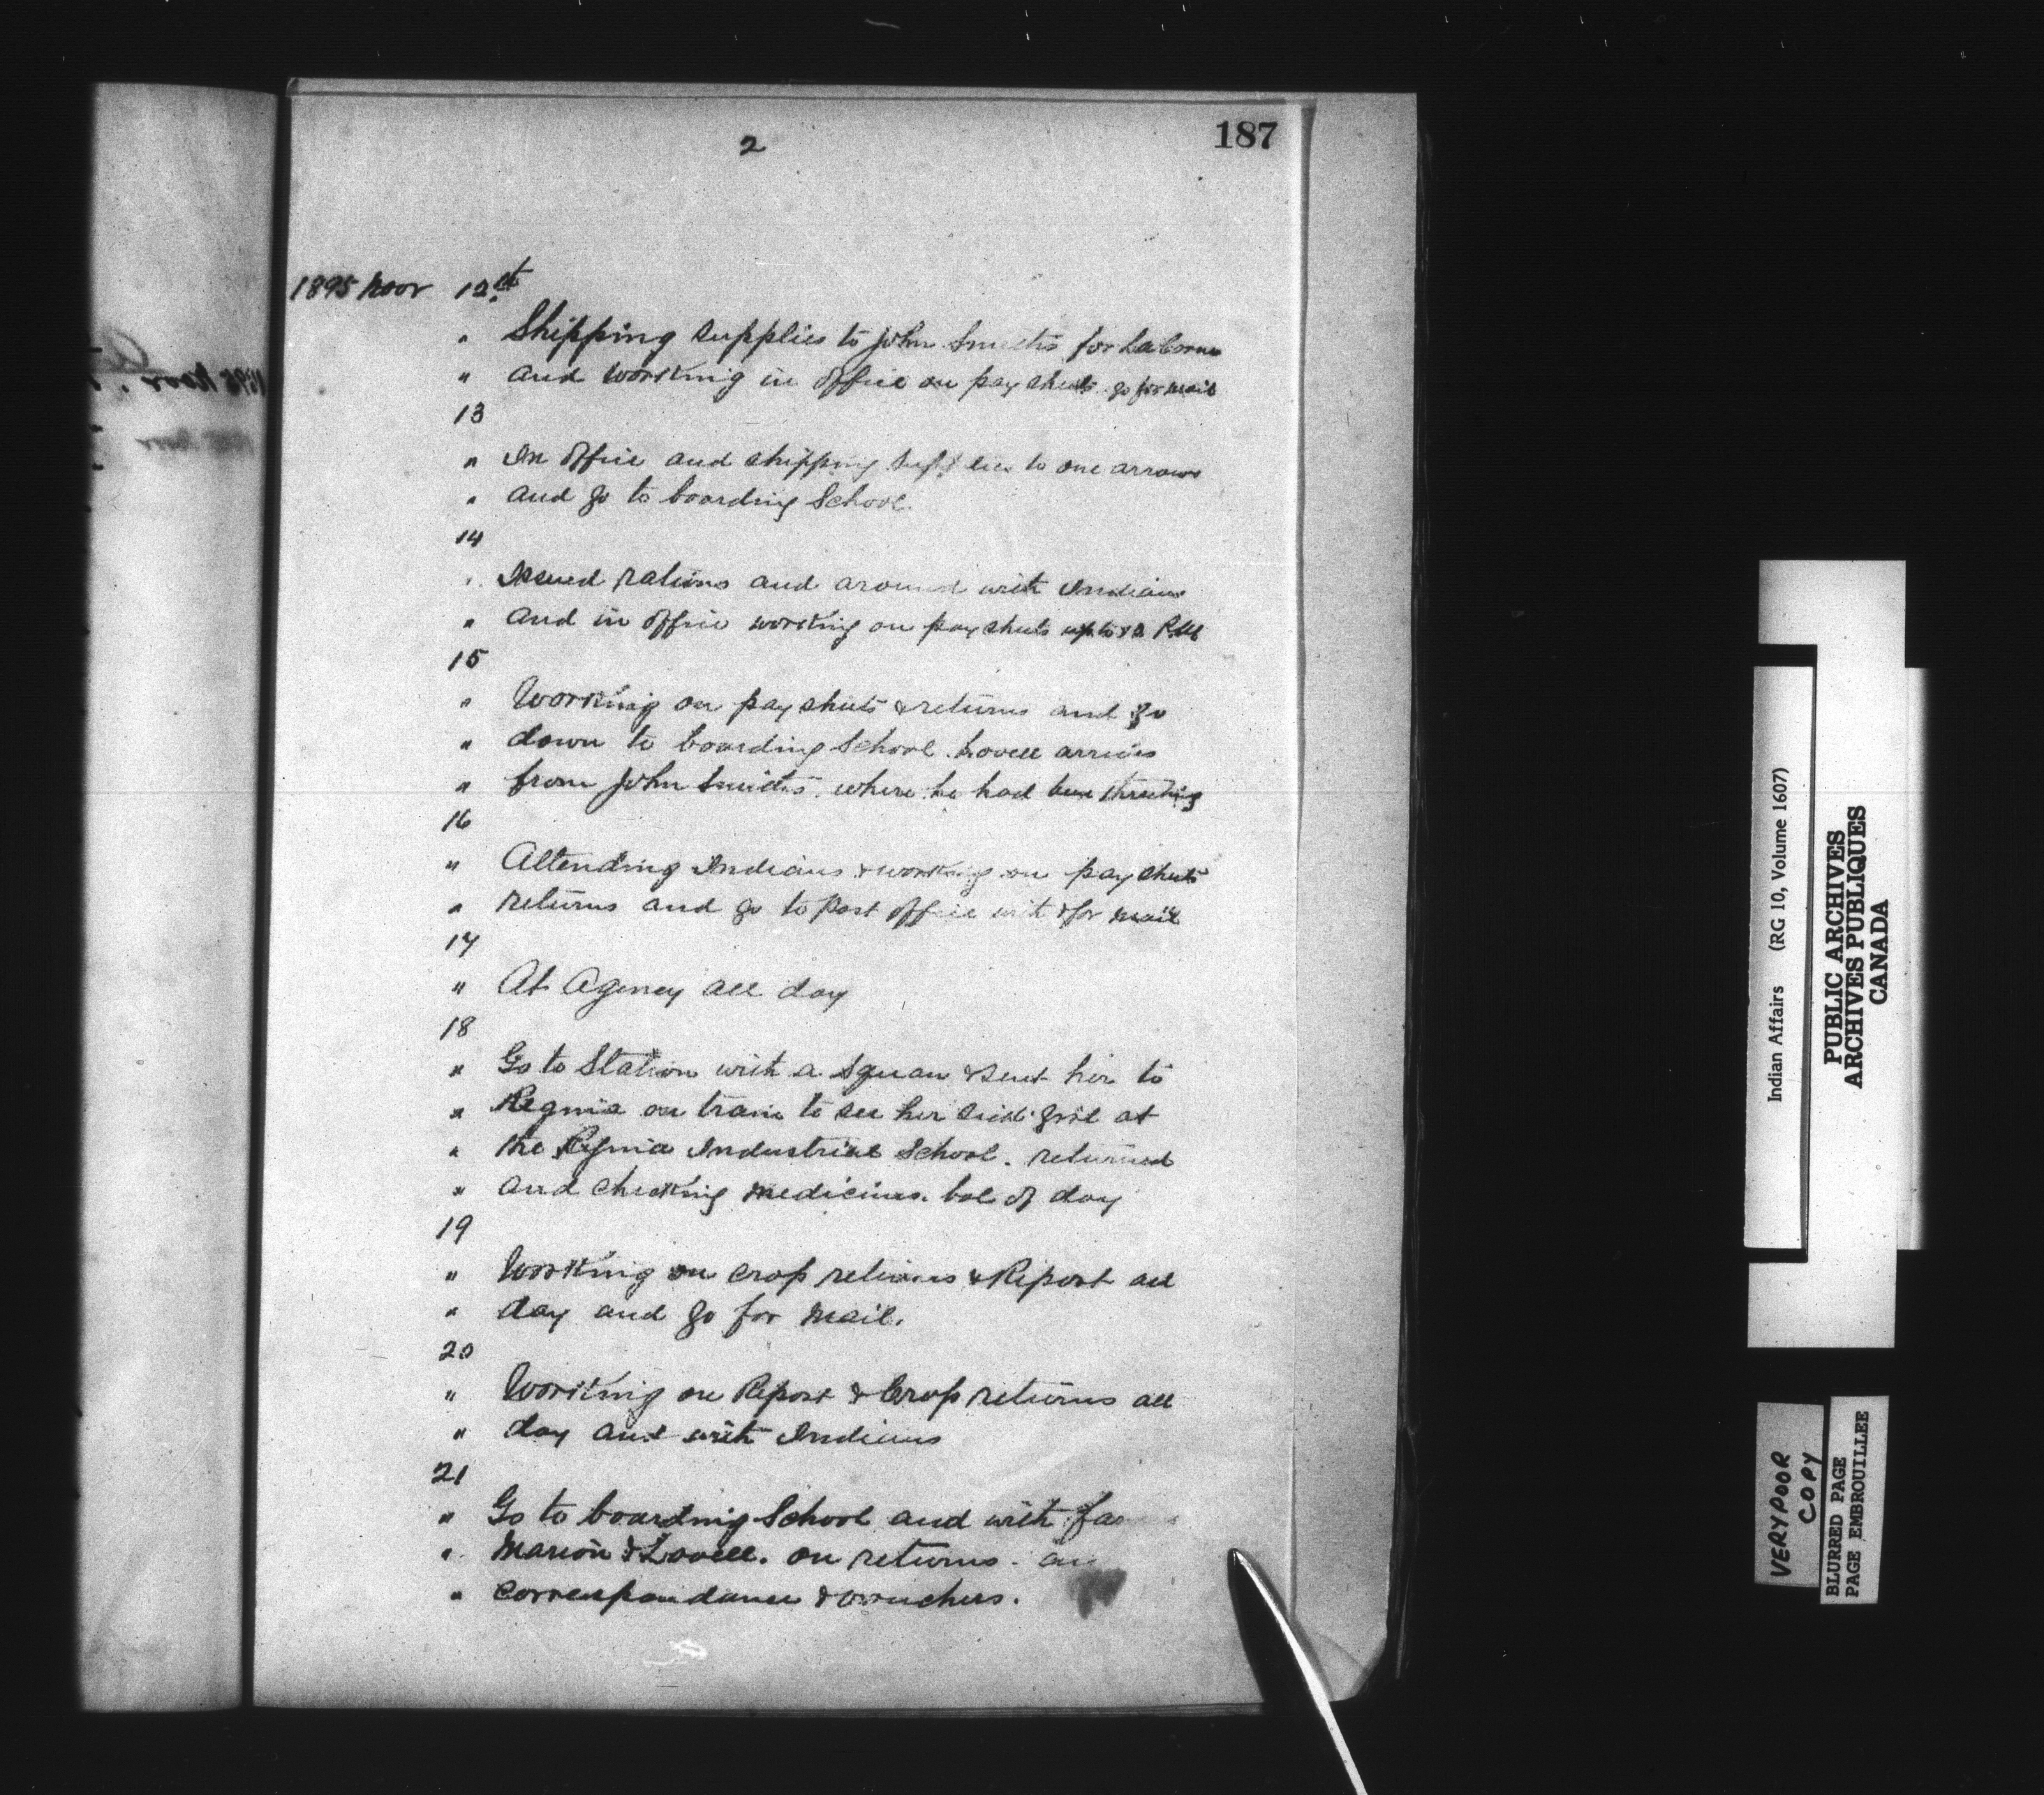 187
2
1895 Novr 12st
" Shipping supplies to John Smiths for Laborne
" and working in office on pay sheets go for mail
13
" In office and shipping supplies to one arrows
" and go to boarding School.
14
" Issued rations and around with Indians
" and in office working on pay sheets up to 12 PM
15
" Working on pay sheets & returns and go
" down to boarding School. Lovell arrives
" from John Smiths. where he had been threshing
16
" Attending Indians & working on pay sheets
" returns and go to Post office with & for mail
17
" At Agency all day
18
" Go to Station with a squaw & sent her to
" Regina on train to see her sick girl at
" the Regina Industrial School. returned
" and checking medicines. bal of day
19
" Working on crop returns & Report all
" day and go for mail.
20
" Working on Report & Crop returns all
" day and with Indians
21
" Go to boarding School and with
" Marion & Lovell. on returns.
" Correspondance & vouchers.
Indian Affairs (RG 10, Volume 1607)
PUBLIC ARCHIVES
ARCHIVES PUBLIQUES
CANADA
VERY POOR
COPY
BLURRED PAGE
PAGE EMBROUILLEE